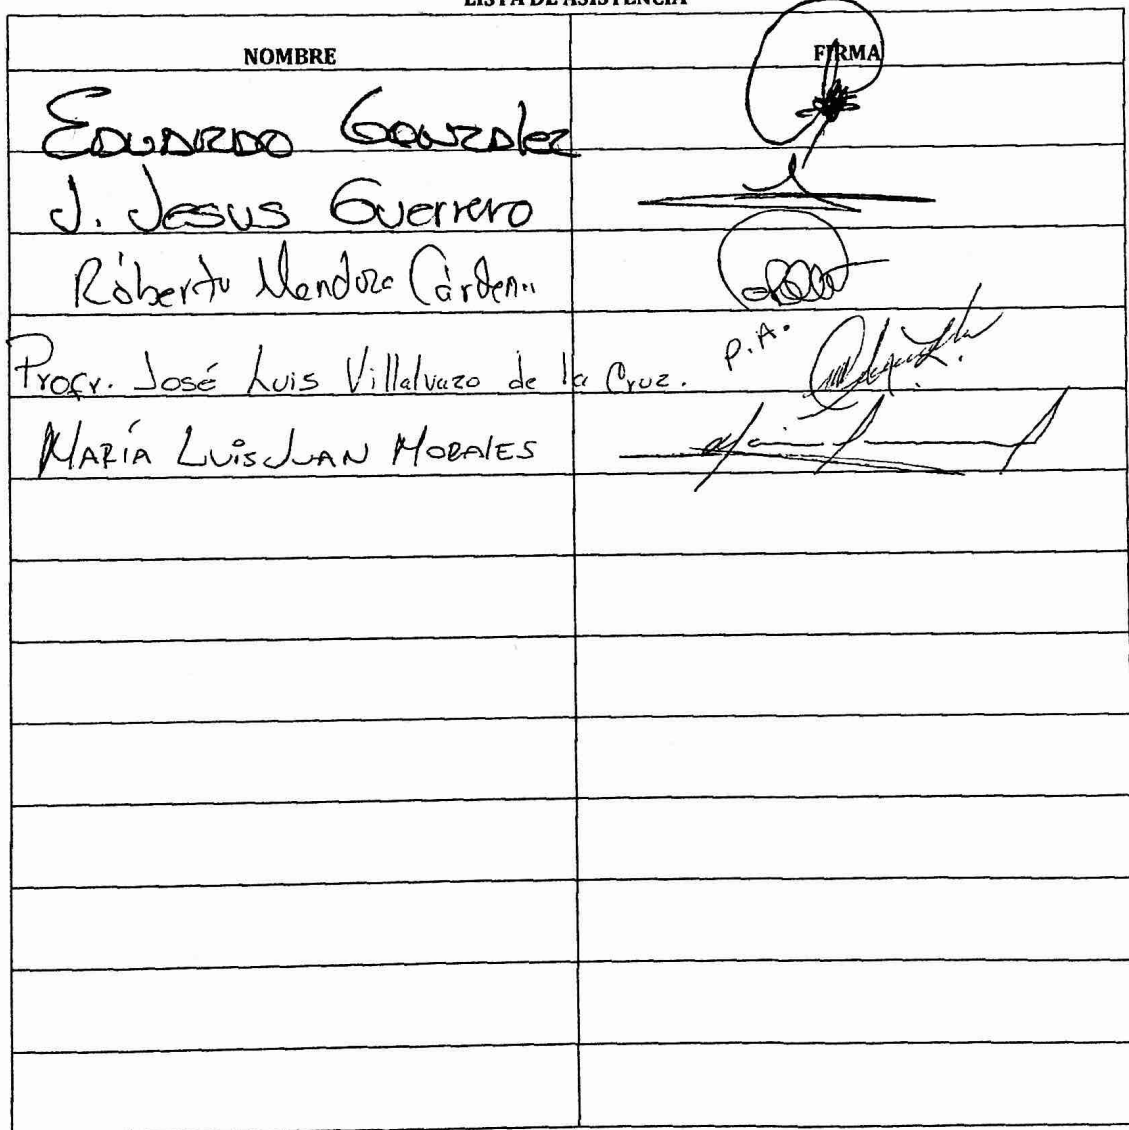 LISTA DE ASISTENCIA
NOMBRE FIRMA
EDUARDO Gonzalez
J. Jesus Guerrero
Róberto Mendoza
Profr. José Luis Villalvazo de la Cruz. P.A.
MARÍA LUISJUAN MORALES